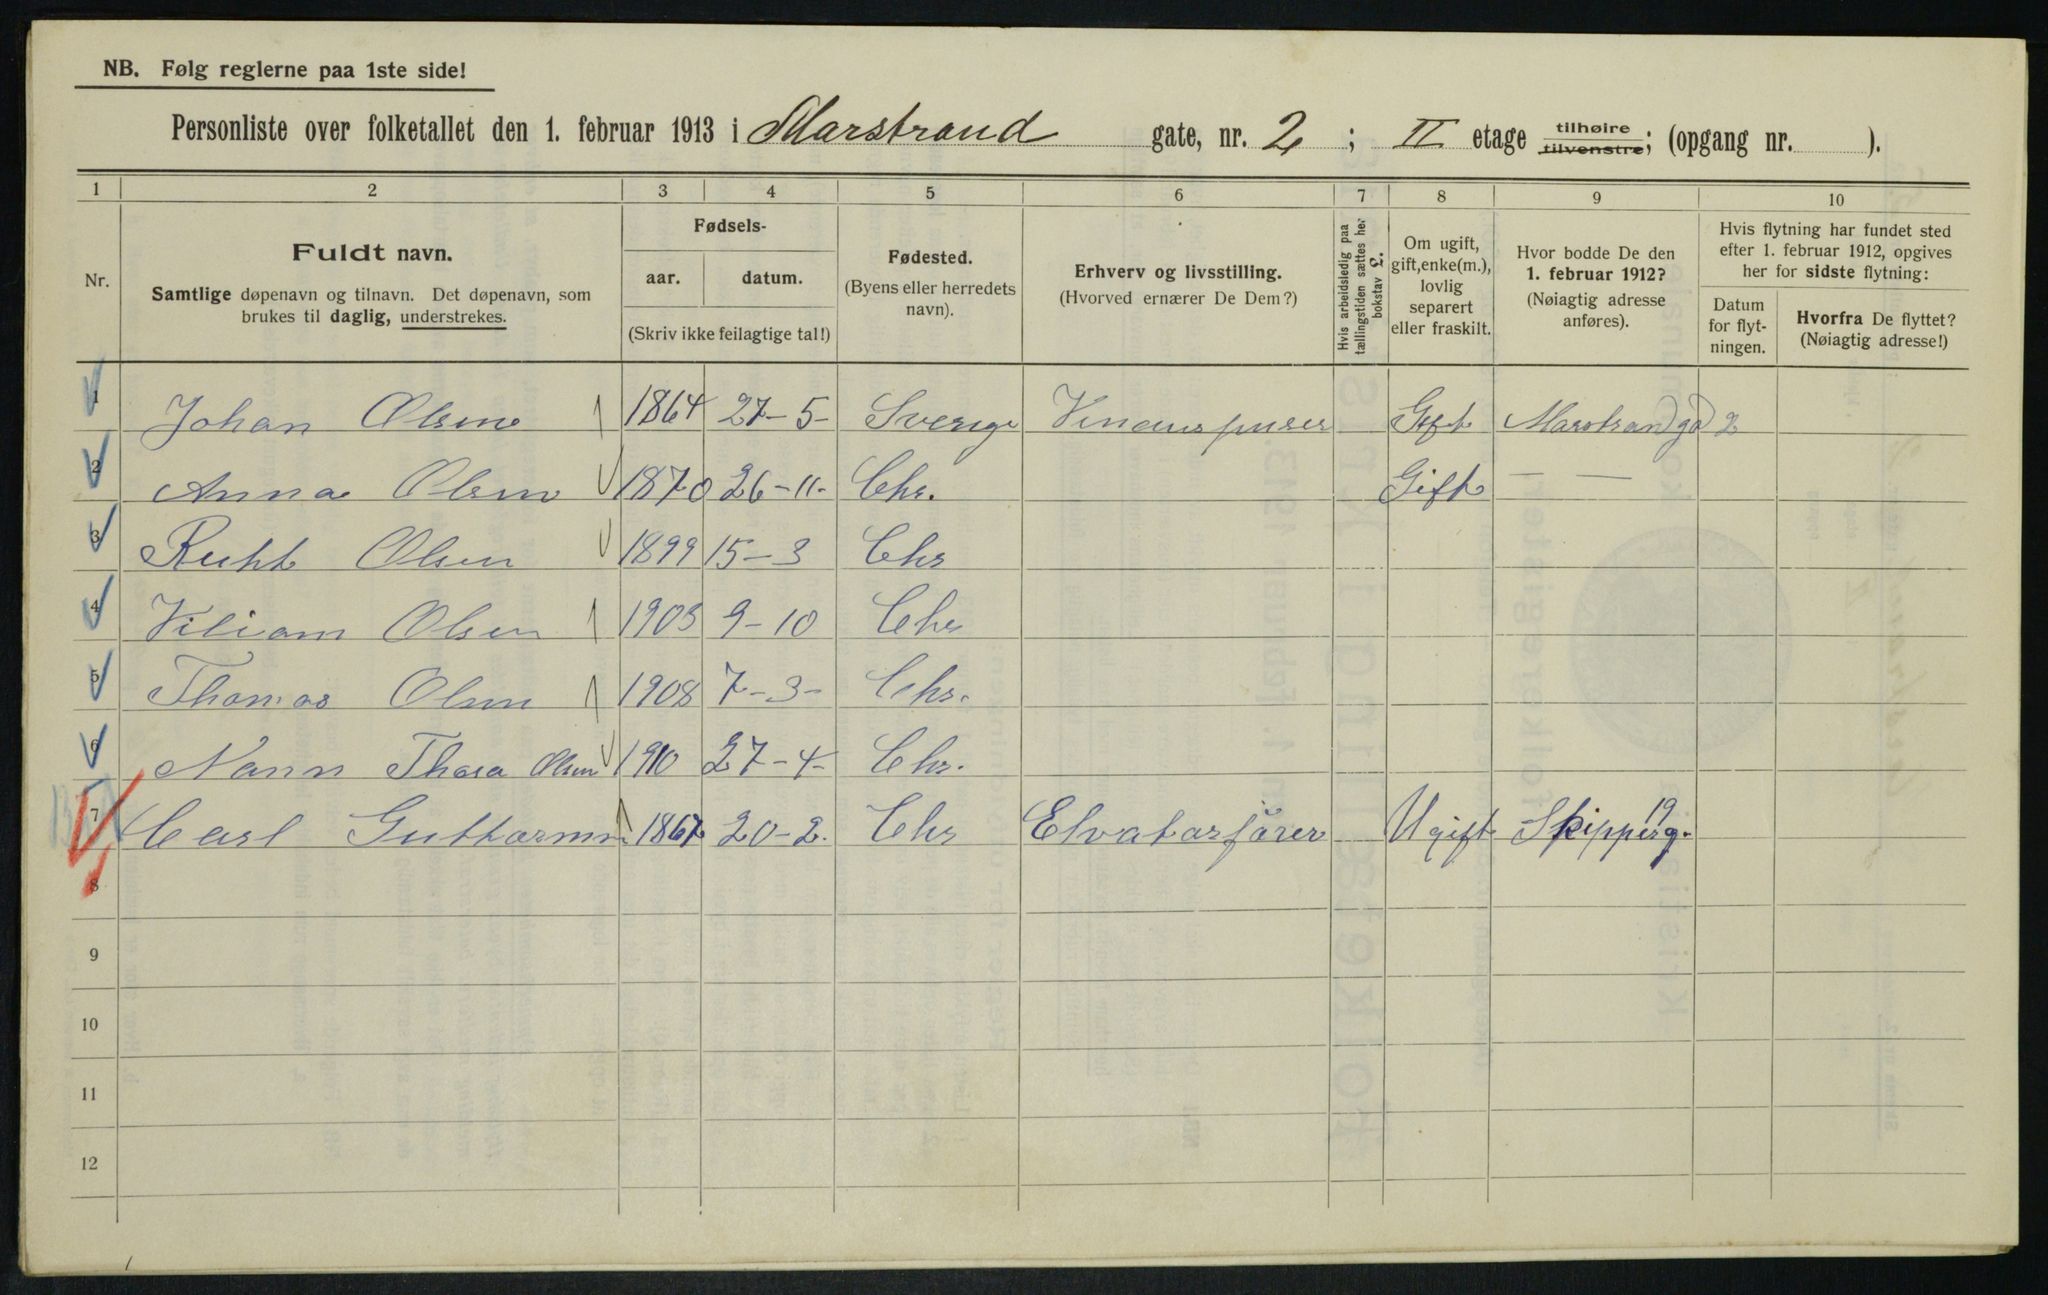 NB. Følg reglerne paa 1ste side!
Personliste over folketallet den 1. februar 1913 i Marstrand gate, nr. 2 ; II etage tilhøire tilvenstre; (opgang nr. ).
1 2 3 4 5 6 7 8 9 10
Nr.
Fuldt navn.
Samtlige døpenavn og tilnavn. Det døpenavn, som
brukes til daglig, understrekes.
Fødsels-
aar. datum.
(Skriv ikke feilagtige tal!)
Fødested.
(Byens eller herredets
navn).
Erhverv og livsstilling.
(Hvorved ernærer De Dem?)
Hvis arbeidsledig paa
tællingstiden sættes her
bokstav L.
Om ugift,
gift, enke(m.),
lovlig
separert
eller fraskilt.
Hvor bodde De den
1. februar 1912?
(Nøiagtig adresse
anføres).
Hvis flytning har fundet sted
efter 1. februar 1912, opgives
her for sidste flytning:
Datum
for flyt-
ningen.
Hvorfra De flyttet?
(Nøiagtig adresse!)
1 Johan Olsen 1864 27-5- Sverige Gift Marstrandgd 2
2 Anna Olsen 1870 26-11- Chr. Gift — —
3 Ruht Olsen 1899 15-3 Chr
4 Viliam Olsen 1903 9-10 Chr
5 Thomas Olsen 1908 7-3- Chr.
6 Nann Thora Olsen 1910 27-4- Chr.
7 Carl Guttormn 1867 20-2. Chr Elvatorförer Ugift Skipperg. 19
8
9
10
11
12